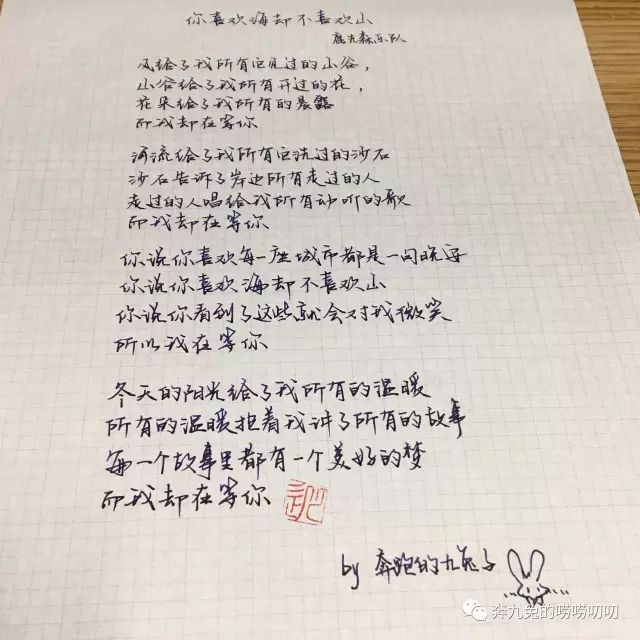 你喜欢海却不喜欢山
鹿先森乐队
风给了我所有它见过的山谷，
山谷给了我所有开过的花，
花朵给了我所有的晨露
而我却在等你
河流给了我所有它洗过的沙石
沙石告诉了岸边所有走过的人
走过的人唱给我所有动听的歌
而我却在等你
你说你喜欢每一座城市都是一句晚安
你说你喜欢海却不喜欢山
你说你看到了这些就会对我微笑
所以我在等你
冬天的阳光给了我所有的温暖
所有的温暖抱着我讲了所有的故事
每一个故事里都有一个美好的梦
而我却在等你
by 奔跑的九兔子
奔九兔的唠唠叨叨